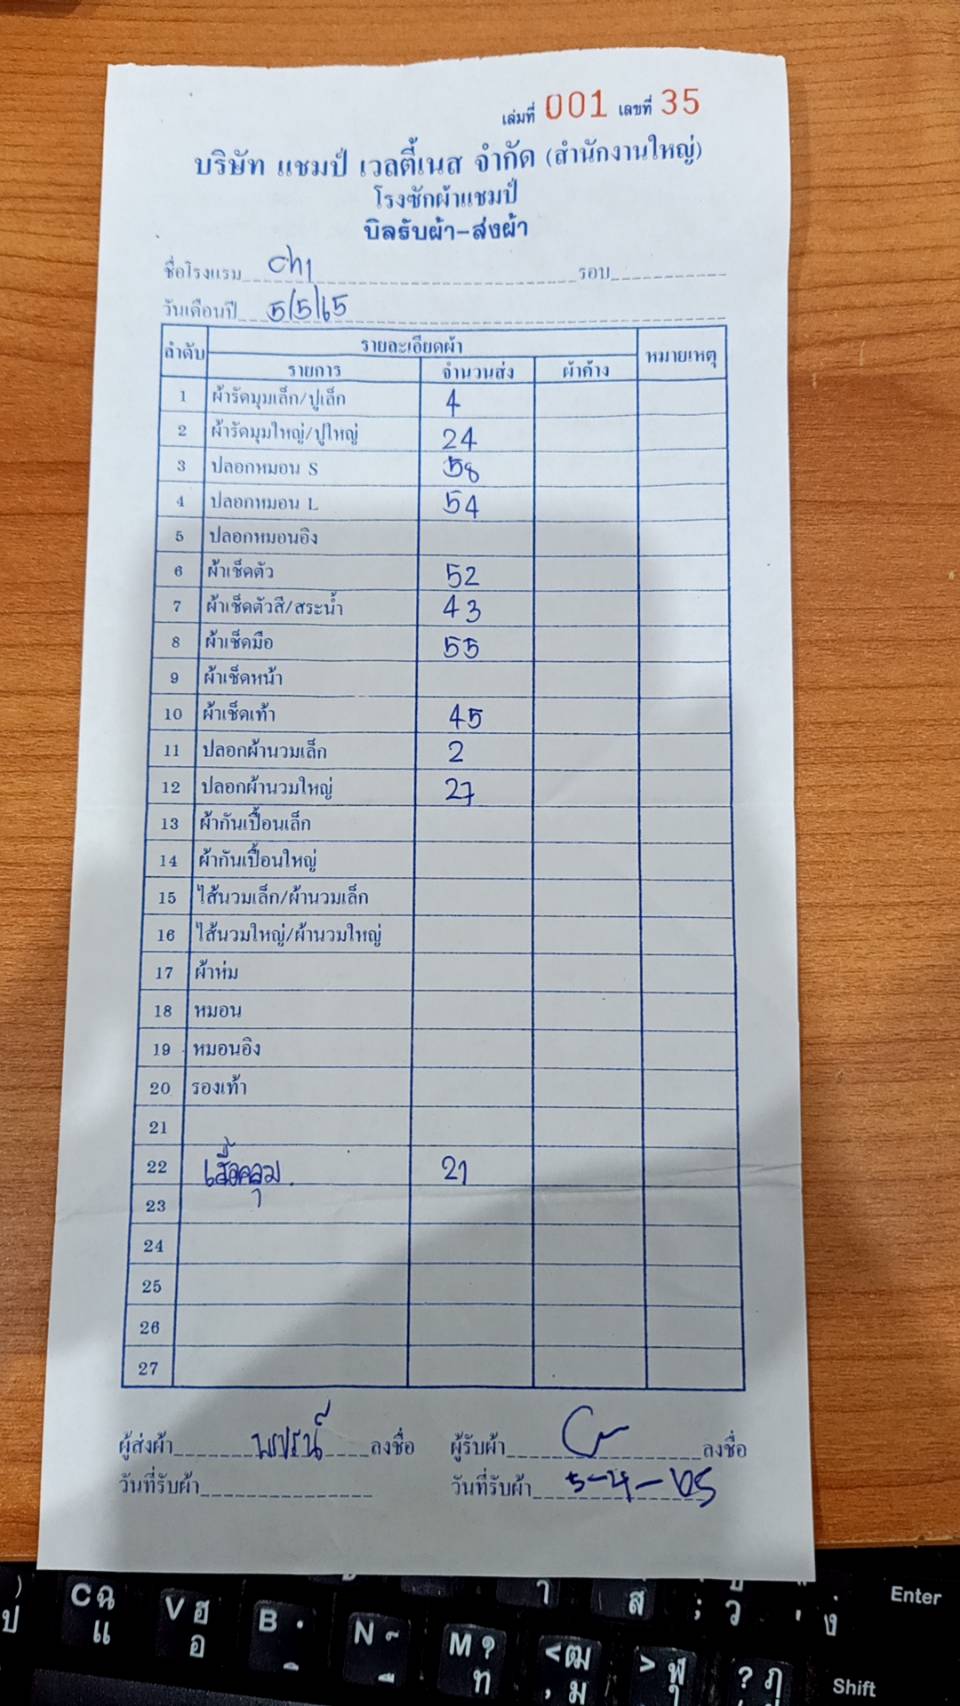 เล่มที่ 001 เลขที่ 35
บริษัท แชมป์ เวลตี้เนส จำกัด (สำนักงานใหญ่)
โรงซักผ้าแชมป์
บิลรับผ้า-ส่งผ้า
ชื่อโรงแรม Ch1 รอบ
วันเดือนปี 5/5/65
ลำดับ รายละเอียดผ้า หมายเหตุ
รายการ จำนวนส่ง ผ้าค้าง
1 ผ้ารัดมุมเล็ก/ปูเล็ก 4
2 ผ้ารัดมุมใหญ่/ปูใหญ่ 24
3 ปลอกหมอน S 58
4 ปลอกหมอน L 54
5 ปลอกหมอนอิง
6 ผ้าเช็ดตัว 52
7 ผ้าเช็ดตัวสี/สระน้ำ 43
8 ผ้าเช็ดมือ 55
9 ผ้าเช็ดหน้า
10 ผ้าเช็ดเท้า 45
11 ปลอกผ้านวมเล็ก 2
12 ปลอกผ้านวมใหญ่ 27
13 ผ้ากันเปื้อนเล็ก
14 ผ้ากันเปื้อนใหญ่
15 ไส้นวมเล็ก/ผ้านวมเล็ก
16 ไส้นวมใหญ่/ผ้านวมใหญ่
17 ผ้าห่ม
18 หมอน
19 หมอนอิง
20 รองเท้า
21
22 เสื้อคลุม 21
23
24
25
26
27
ผู้ส่งผ้า ลงชื่อ ผู้รับผ้า ลงชื่อ
วันที่รับผ้า วันที่รับผ้า 5-4-65
Cฉ แ Vฮ อ B N M ? ท < ฒ , ม > ฬ ? ฦ Shift
ส ; ว ' ง Enter